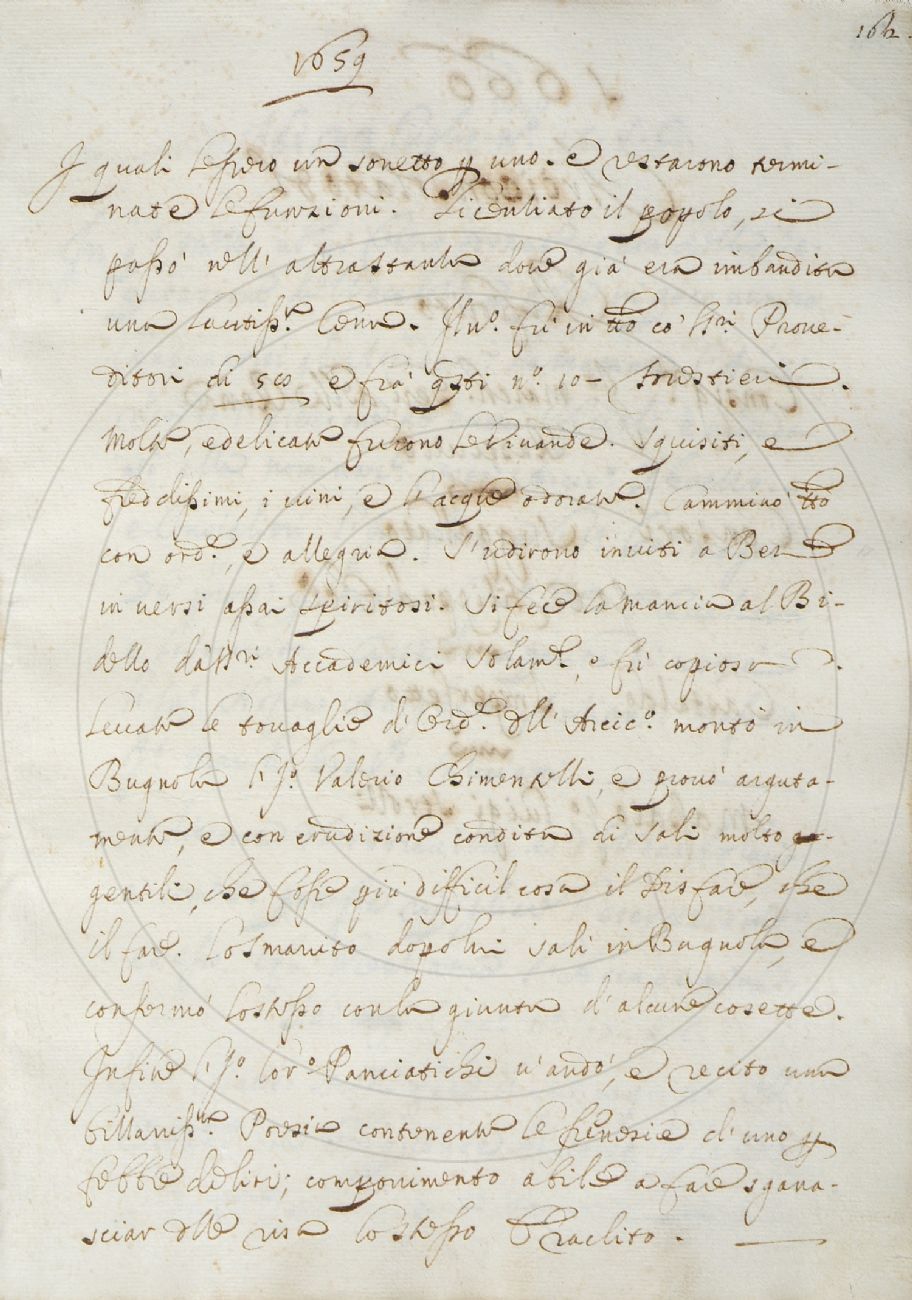 162.
1659
I quali lessero un sonetto p uno. e restarono termi-
nate le funzioni. Licenziato il popolo, si
passò nell' altra stanza doue già era imbandita
una lautiss.ᵃ Cena. Il nº. fù in tto co' SSri Proue-
ditori di sco e frà qsti nº. 10 - forestieri.
Molte, e delicate furono le Viuande. Squisiti, e
freddissimi, i uini, e l'acque odorate. Camminò tto
con ord.ᵉ, e allegria. S'udirono inuiti a Bere
in uersi assai spiritosi. Si fece la mancia al Bi-
dello da SSri Accademici solam.ᵗᵉ, e fù copiosa.
Leuate le touaglie d'Ord.ᵉ dll' Arcic.º montò in
Bugnola l' Jº. Valerio Chimentelli, e prouò arguta-
mente, e con erudizione condita di sali molto
gentili, che fosse più difficil cosa il Disfare, che
il fare. Lo Smarrito dopo lui salì in Bugnola, e
confermò lo stesso con la giunta d'alcune cosette.
In fine l' Jº. Lorº. Panciatichi u'andò, e recitò una
bizzarriss.ᵃ Poesia contenente le frenesie d'uno p
febbre deliri; componimento abile a fare sgana-
sciar dlle risa lo stesso Eraclito.